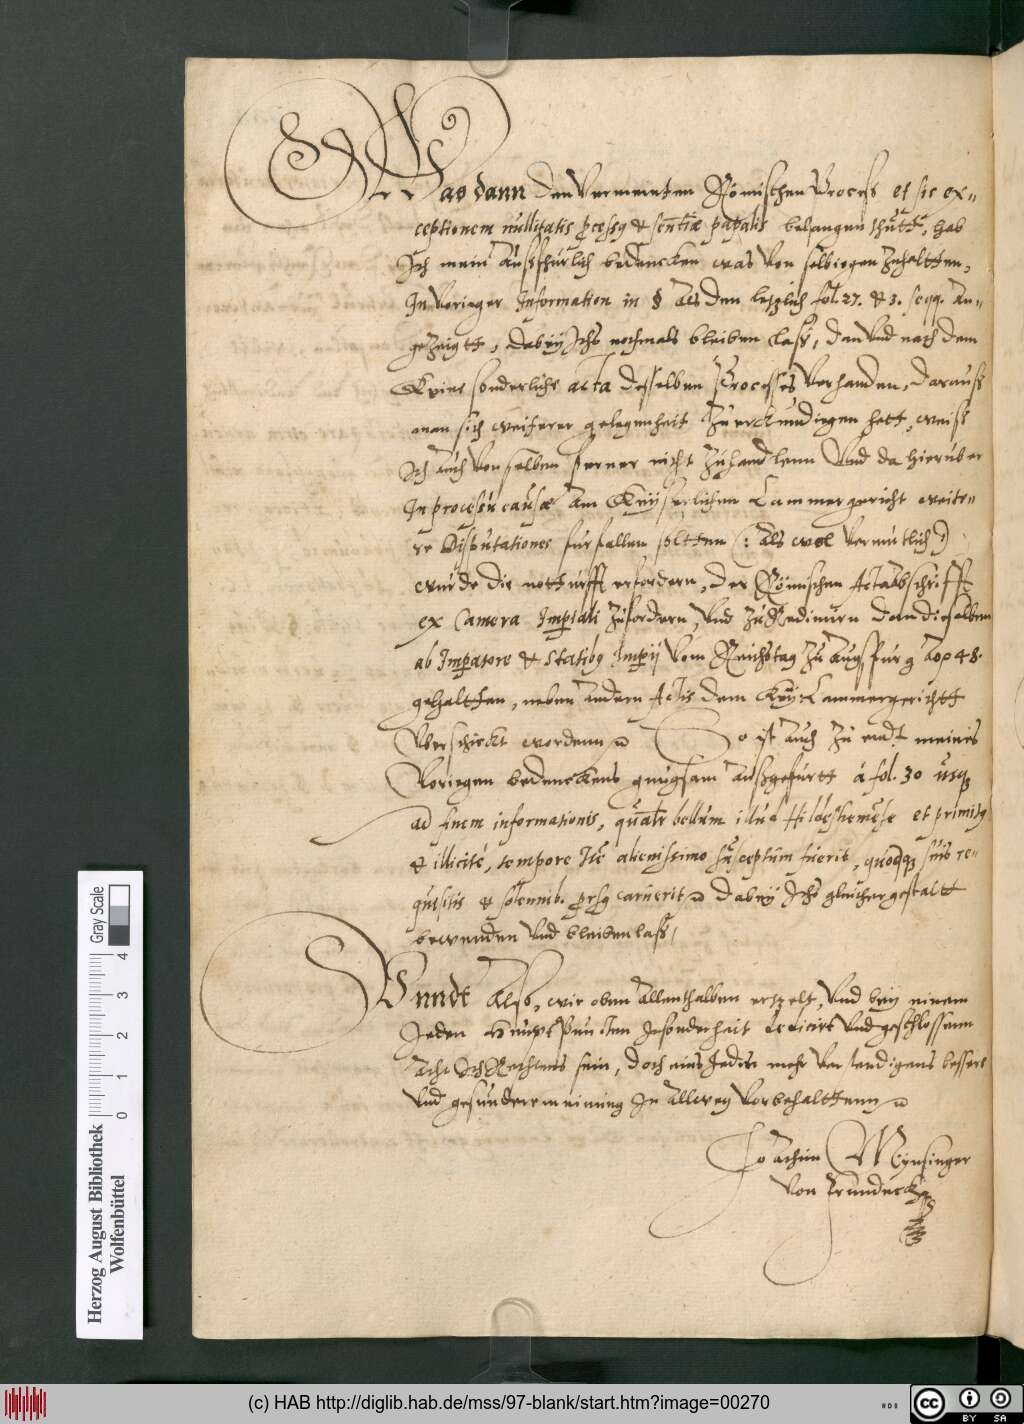 Was dann den Vermeinten Römischen Process et sic ex-
ceptionem nullitatis ꝓcessꝯ & sentiæ papalis belangen thutt, hab
Ich mein Außfhürlich bedencken was Von selbiegen Zuhaltten,
In Voriger Information in § Als den letzlich fol. 27. & 3. seqq. An-
gezeigtt, dabey Ichs nochmals bleiben lass, dan Vnd nach dem
Keine sonderlichs acta desselben Processes Verhanden, darauss
man sich weiterer gelegenheit Zu erckundiegen hett, weiss
Ich Auch Von selben ferner nicht Zuhandlenn Vnd da hierüber
In processu causæ Am Keyserlichen Cammergericht weite-
re Disputationes fürfallen soltten (: Als wol Vermutlich :)
wurde die notturfft erfordern, der Römischen Act Abschrifft
ex Camera Imperiali Zufordern, Vnd Zu Redimirn dan dieselben
ab Imperatore & Statibꝯ Imperij Vom Reichstag Zu Augspurg Ao 48.
gehaltten, neben Andern Actis dem Key: Cammergerichtt
Vberschickt worden So ist auch Zu endt meines
Voriegen bedenckens gnugsam Außgefurtt à fol. 30 usqꝫ
ad finem informationis, qualr bellum illud Hildesheimense et primitꝯ
& illicitè, tempore Ite alienissimo susceptum fuerit, quodqꝫ suis re-
quisitis & solennib. ꝓrsꝯ caruerit dabey Ichs gleicher gestaltt
bewenden Vnd bleiben lass,
Vnndt Also, wie oben Allenthalben erzelt, Vnd bey einem
Jeden Haupt Puncten Insonderheit Dedicirt Vnd geschlossenn
Acht Ich Rechtens sein, doch eins Jeden mehr Verstendigens bessers
Vnd gesundere meinung In Allweg Vorbehalttenn
Joachim Mynsinger
Von Frundeck
Herzog August Bibliothek
Wolfenbüttel
0 1 2 3 4
Gray Scale
(c) HAB http://diglib.hab.de/mss/97-blank/start.htm?image=00270
cc BY SA